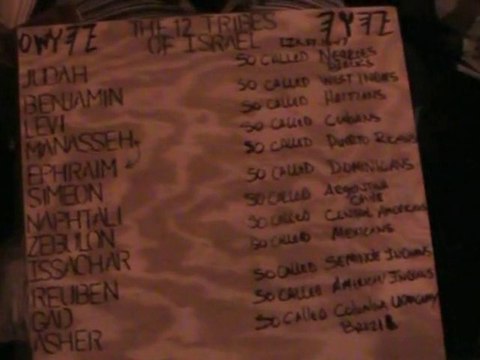 THE 12 TRIBES
OF ISRAEL
JUDAH SO CALLED NEGROES
BENJAMIN SO CALLED WEST INDIES
LEVI SO CALLED HAITIANS
MANASSEH SO CALLED CUBANS
EPHRAIM SO CALLED PUERTO RICANS
SIMEON SO CALLED DOMINICANS
NAPHTALI SO CALLED ARGENTINA
ZEBULON SO CALLED CENTRAL AMERICANS
ISSACHAR SO CALLED MEXICANS
REUBEN SO CALLED SEMINOLE INDIANS
GAD SO CALLED AMERICAN INDIANS
ASHER SO CALLED COLOMBIA URUGUAY
BRAZIL